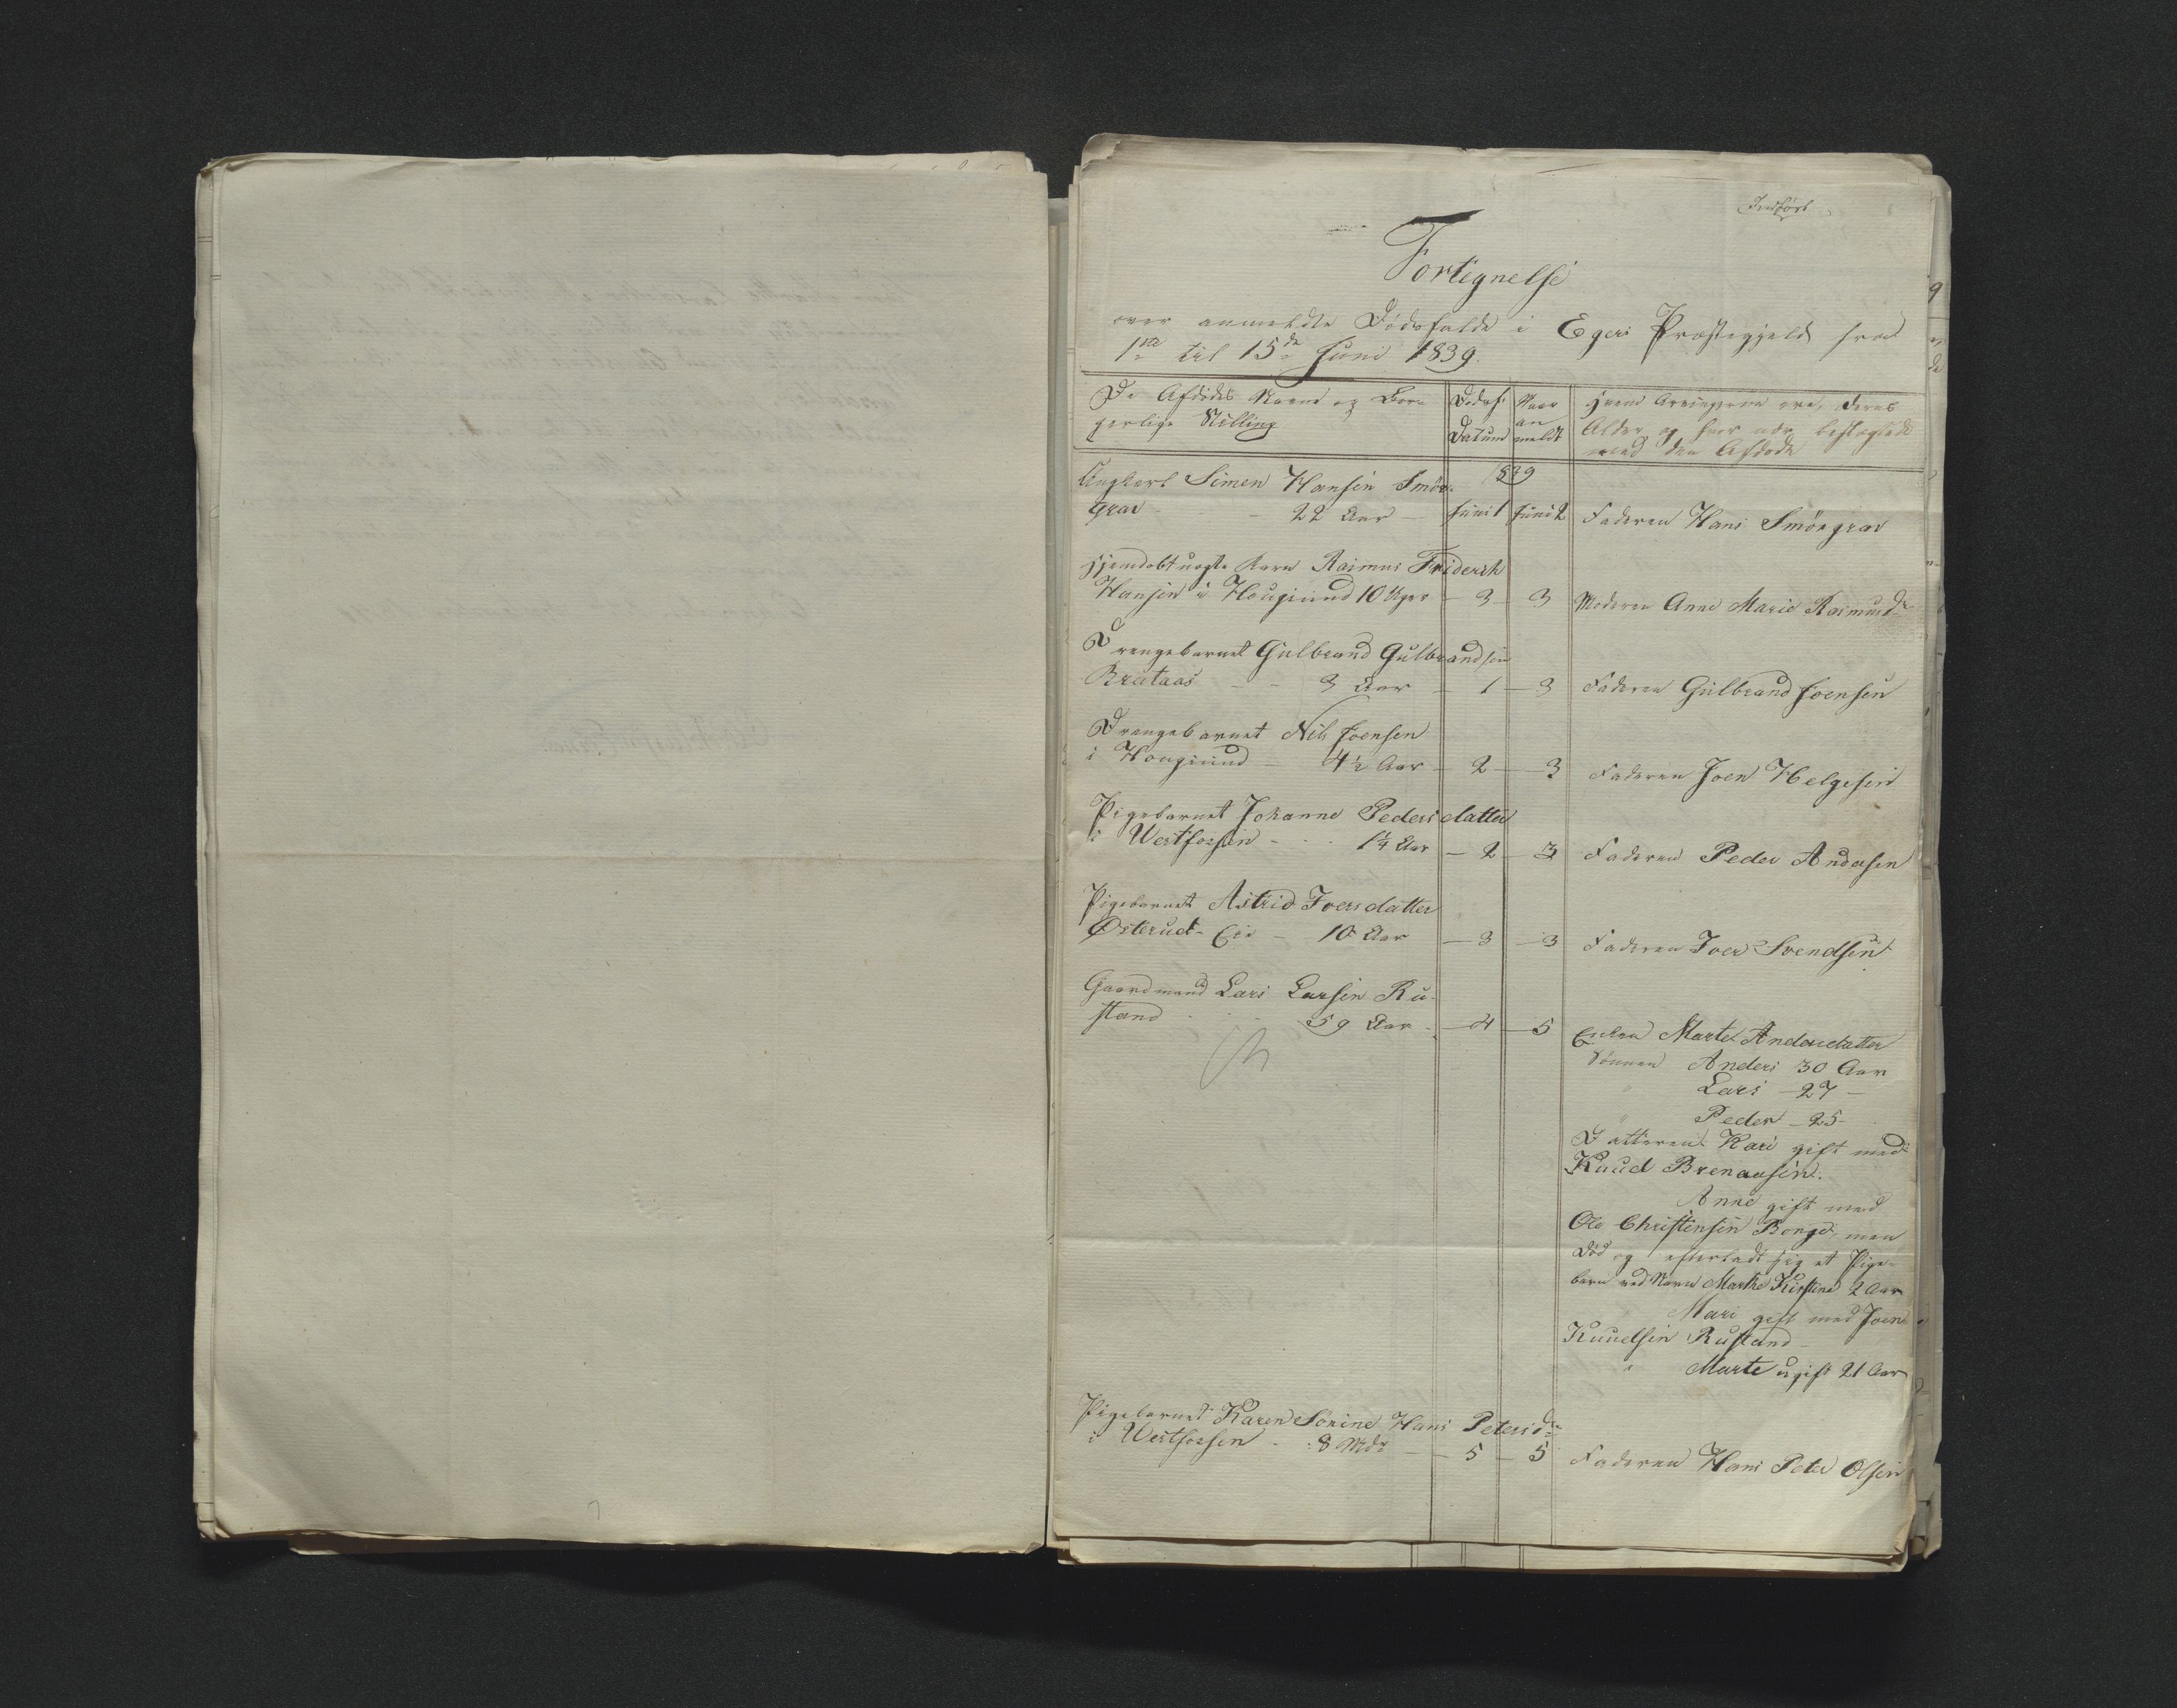 Indført
Fortegnelse
over anmeldte Dødsfalde i Egers Præstegjeld fra
1ste til 15de Juni 1839.
De Afdødes Navne og Bor-
gerlige Stilling
Dødsf:
Datum
Naar
an
meldt
Hvem Arvingerne ere, deres
Alder og hvor nær beslægtede
med den Afdøde
1839
Ungkarl Simen Hansen Smör-
grav - 22 Aar - Juni 1 Juni 2 Faderen Hans Smörgrav
Hjemdøbt uægte Barn Rasmus Friderich
Hansen i Hougsund 10 Uger - 3 - 3 Moderen Anne Marie Rasmusdr
Drengebarnet Gulbrand Gulbrandsen
Brataas - - 3 Aar - 1 - 3 Faderen Gulbrand Joensen
Drengebarnet Nils Joensen
i Hougsund - 4½ Aar - 2 - 3 Faderen Joen Helgesen
Pigebarnet Johanne Pedersdatter
i Westfossen - - - 1¼ Aar - 2 - 3 Faderen Peder Andersen
Pigebarnet Astrid Iversdatter
Østerud-Eie - 10 Aar - 3 - 3 Faderen Iver Svendsen
Gaardmand Lars Larsen Ru-
stand - - - 59 Aar - 4 - 5 Enken Marte Andersdatter
Sönnen Anders 30 Aar
" Lars - 27 -
" Peder - 25 -
Datteren Kari gift med
Knud Brenaasen.
Anne gift med
Ole Christensen Borge, men
død og efterladt sig et Pige-
barn ved Navn Marthe Kirstine 2 Aar
Mari gift med Joen
Knudsen Rustand -
" Marte ugift 21 Aar
Pigebarnet Karen Sörine Hans Petersdr
i Westfossen - 8 Mdr - 5 - 5 Faderen Hans Peter Olsen